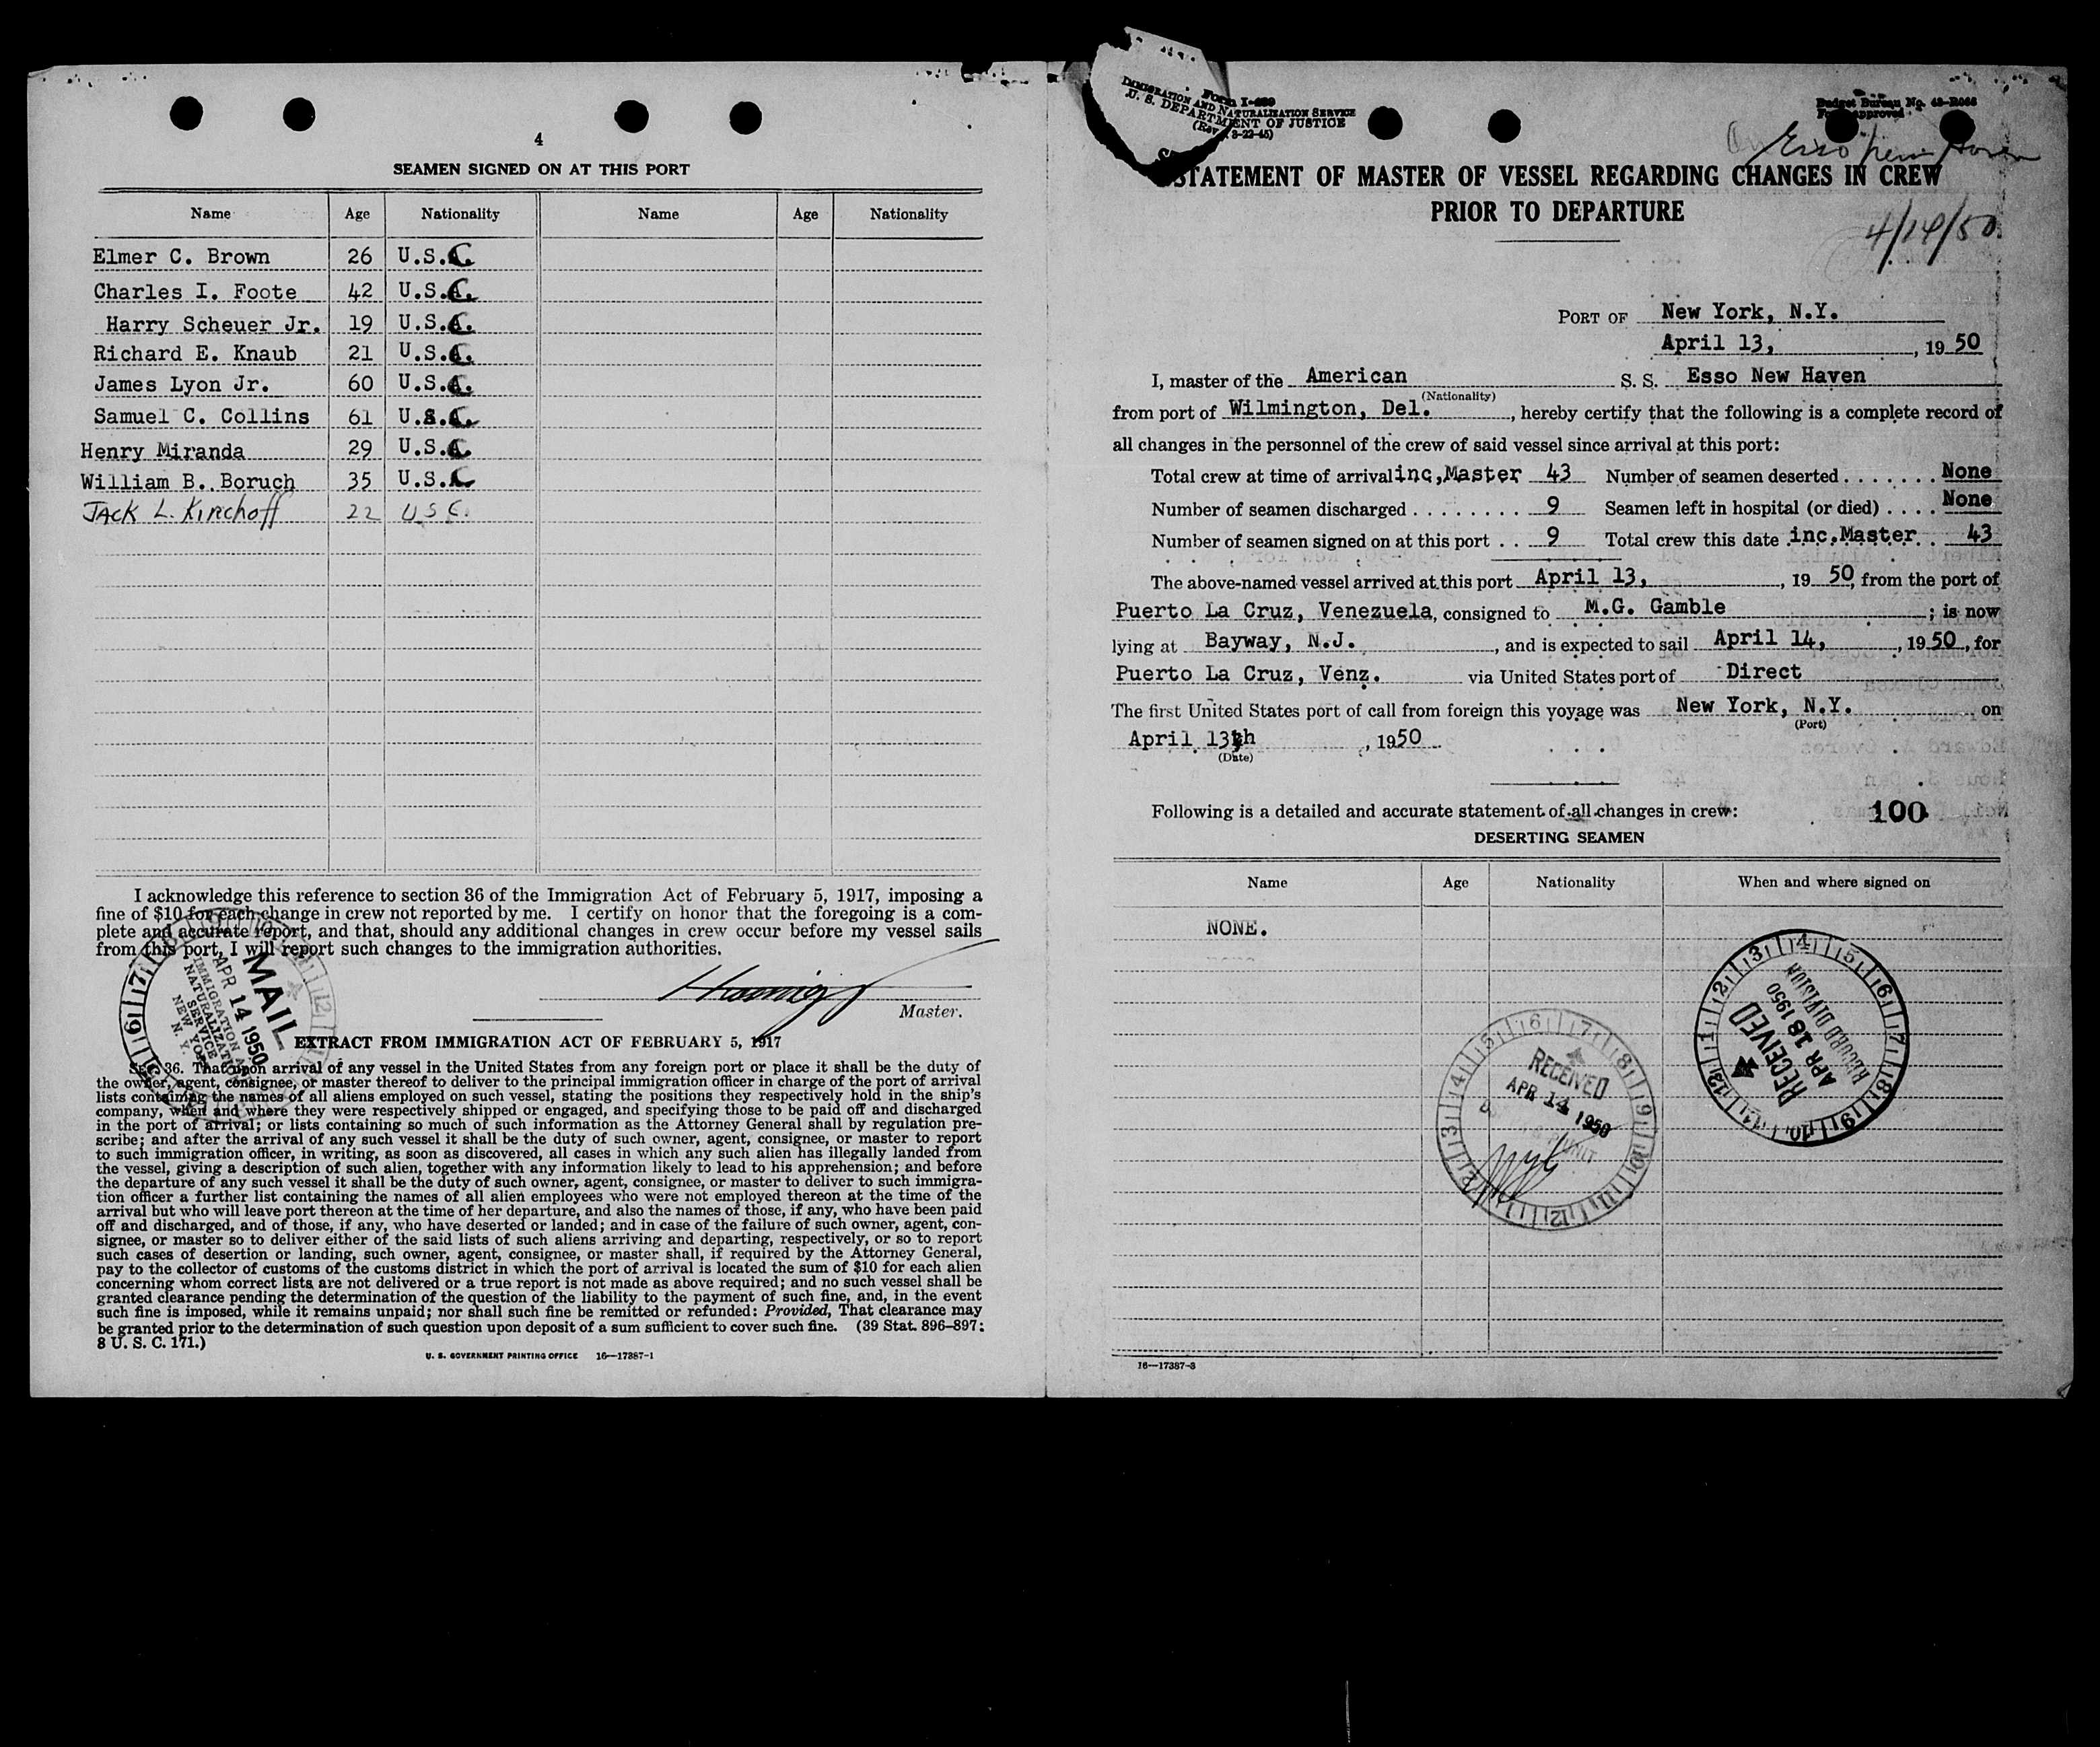 4
SEAMEN SIGNED ON AT THIS PORT
Name Age Nationality Name Age Nationality
Elmer C. Brown 26 U.S.C.
Charles I. Foote 42 U.S.C.
Harry Scheuer Jr. 19 U.S.C.
Richard E. Knaub 21 U.S.C.
James Lyon Jr. 60 U.S.C.
Samuel C. Collins 61 U.S.C.
Henry Miranda 29 U.S.C.
William B. Boruch 35 U.S.C.
JACK L. KIRCHOFF 22 U S C.
I acknowledge this reference to section 36 of the Immigration Act of February 5, 1917, imposing a
fine of $10 for each change in crew not reported by me. I certify on honor that the foregoing is a com-
plete and accurate report, and that, should any additional changes in crew occur before my vessel sails
from this port, I will report such changes to the immigration authorities.
Master.
MAIL
APR 14 1950
IMMIGRATION &
NATURALIZATION
SERVICE
NEW YORK
N. Y.
EXTRACT FROM IMMIGRATION ACT OF FEBRUARY 5, 1917
SEC. 36. That upon arrival of any vessel in the United States from any foreign port or place it shall be the duty of
the owner, agent, consignee, or master thereof to deliver to the principal immigration officer in charge of the port of arrival
lists containing the names of all aliens employed on such vessel, stating the positions they respectively hold in the ship's
company, when and where they were respectively shipped or engaged, and specifying those to be paid off and discharged
in the port of arrival; or lists containing so much of such information as the Attorney General shall by regulation pre-
scribe; and after the arrival of any such vessel it shall be the duty of such owner, agent, consignee, or master to report
to such immigration officer, in writing, as soon as discovered, all cases in which any such alien has illegally landed from
the vessel, giving a description of such alien, together with any information likely to lead to his apprehension; and before
the departure of any such vessel it shall be the duty of such owner, agent, consignee, or master to deliver to such immigra-
tion officer a further list containing the names of all alien employees who were not employed thereon at the time of the
arrival but who will leave port thereon at the time of her departure, and also the names of those, if any, who have been paid
off and discharged, and of those, if any, who have deserted or landed; and in case of the failure of such owner, agent, con-
signee, or master so to deliver either of the said lists of such aliens arriving and departing, respectively, or so to report
such cases of desertion or landing, such owner, agent, consignee, or master shall, if required by the Attorney General,
pay to the collector of customs of the customs district in which the port of arrival is located the sum of $10 for each alien
concerning whom correct lists are not delivered or a true report is not made as above required; and no such vessel shall be
granted clearance pending the determination of the question of the liability to the payment of such fine, and, in the event
such fine is imposed, while it remains unpaid; nor shall such fine be remitted or refunded: Provided, That clearance may
be granted prior to the determination of such question upon deposit of a sum sufficient to cover such fine. (39 Stat. 896–897;
8 U. S. C. 171.)
U. S. GOVERNMENT PRINTING OFFICE 16—17387-1
Form I-489
IMMIGRATION AND NATURALIZATION SERVICE
U. S. DEPARTMENT OF JUSTICE
(Rev. 3-22-45)
Budget Bureau No. 43-R066
Approved
Esso New Haven
STATEMENT OF MASTER OF VESSEL REGARDING CHANGES IN CREW
PRIOR TO DEPARTURE
4/14/50
PORT OF New York, N.Y.
April 13, , 19 50
I, master of the American S. S. Esso New Haven
(Nationality)
from port of Wilmington, Del. , hereby certify that the following is a complete record of
all changes in the personnel of the crew of said vessel since arrival at this port:
Total crew at time of arrival inc,Master 43 Number of seamen deserted . . . . . . . None
Number of seamen discharged . . . . . . . . 9 Seamen left in hospital (or died) . . . . None
Number of seamen signed on at this port . . 9 Total crew this date inc.Master. . 43
The above-named vessel arrived at this port April 13, , 19 50, from the port of
Puerto La Cruz, Venezuela, consigned to M.G. Gamble ; is now
lying at Bayway, N.J. , and is expected to sail April 14, , 19 50, for
Puerto La Cruz, Venz. via United States port of Direct
The first United States port of call from foreign this voyage was New York, N.Y. on
(Port)
April 13th , 1950
(Date)
Following is a detailed and accurate statement of all changes in crew: 100
DESERTING SEAMEN
Name Age Nationality When and where signed on
NONE.
RECEIVED
APR 18 1950
RECORD DIVISION
RECEIVED
APR 14 1950
16—17387-3